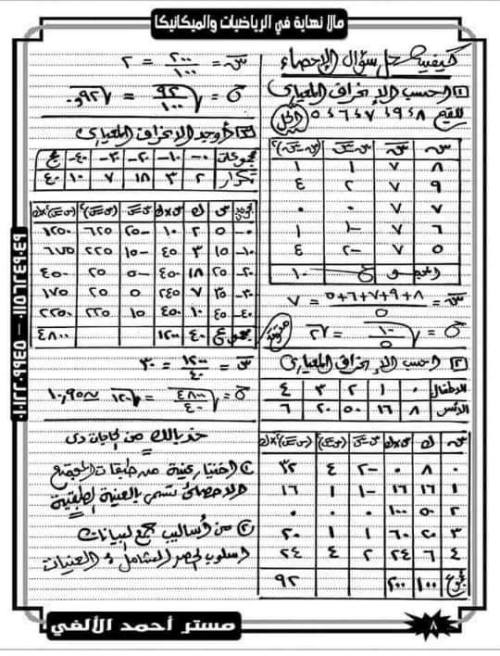 مالا نهاية في الرياضيات والميكانيكا
كيفية حل سؤال الإحصاء
١ احسب الانحراف المعياري
للقيم ٨ ، ٩ ، ٧ ، ٦ ، ٥ الحل
س | س̄ | س-س̄ | (س-س̄)²
٨ | ٧ | ١ | ١
٩ | ٧ | ٢ | ٤
٧ | ٧ | ٠ | ٠
٦ | ٧ | -١ | ١
٥ | ٧ | -٢ | ٤
المجموع | ١٠
س̄ = (٨+٩+٧+٦+٥)/٥ = ٧
σ = √(١٠/٥) = √٢
٢ احسب الانحراف المعياري
الأطفال | ٠ | ١ | ٢ | ٣ | ٤
الأسر | ٨ | ١٦ | ٥٠ | ٢٠ | ٦
س | ك | س×ك | س-س̄ | (س-س̄)² | (س-س̄)²×ك
٠ | ٨ | ٠ | -٢ | ٤ | ٣٢
١ | ١٦ | ١٦ | -١ | ١ | ١٦
٢ | ٥٠ | ١٠٠ | ٠ | ٠ | ٠
٣ | ٢٠ | ٦٠ | ١ | ١ | ٢٠
٤ | ٦ | ٢٤ | ٢ | ٤ | ٢٤
مجموع | ١٠٠ | ٢٠٠ | ٩٢
س̄ = ٢٠٠/١٠٠ = ٢
σ = √(٩٢/١٠٠) = √٠,٩٢
٣ أوجد الانحراف المعياري
مجموعات | ٠- | ١٠- | ٢٠- | ٣٠- | ٤٠- | مج
تكرار | ٢ | ٣ | ١٨ | ٧ | ١٠ | ٤٠
س | ك | س×ك | س-س̄ | (س-س̄)² | (س-س̄)²×ك
٠- | ٥ | ٢ | ١٠ | -٢٥ | ٦٢٥ | ١٢٥٠
١٠- | ١٥ | ٣ | ٤٥ | -١٥ | ٢٢٥ | ٦٧٥
٢٠- | ٢٥ | ١٨ | ٤٥٠ | -٥ | ٢٥ | ٤٥٠
٣٠- | ٣٥ | ٧ | ٢٤٥ | ٥ | ٢٥ | ١٧٥
٤٠- | ٤٥ | ١٠ | ٤٥٠ | ١٥ | ٢٢٥ | ٢٢٥٠
مجموع | ٤٠ | ١٢٠٠ | ٤٨٠٠
س̄ = ١٢٠٠/٤٠ = ٣٠
σ = √(٤٨٠٠/٤٠) = √١٢٠ ≈ ١٠,٩٥
خد بالك من الحاجات دى
١ اختيار عينة من طبقات المجتمع
الاحصائى تسمى بالعينة الطبقية
٢ من أساليب جمع البيانات
اسلوب الحصر الشامل و العينات
مستر أحمد الألفي
٨